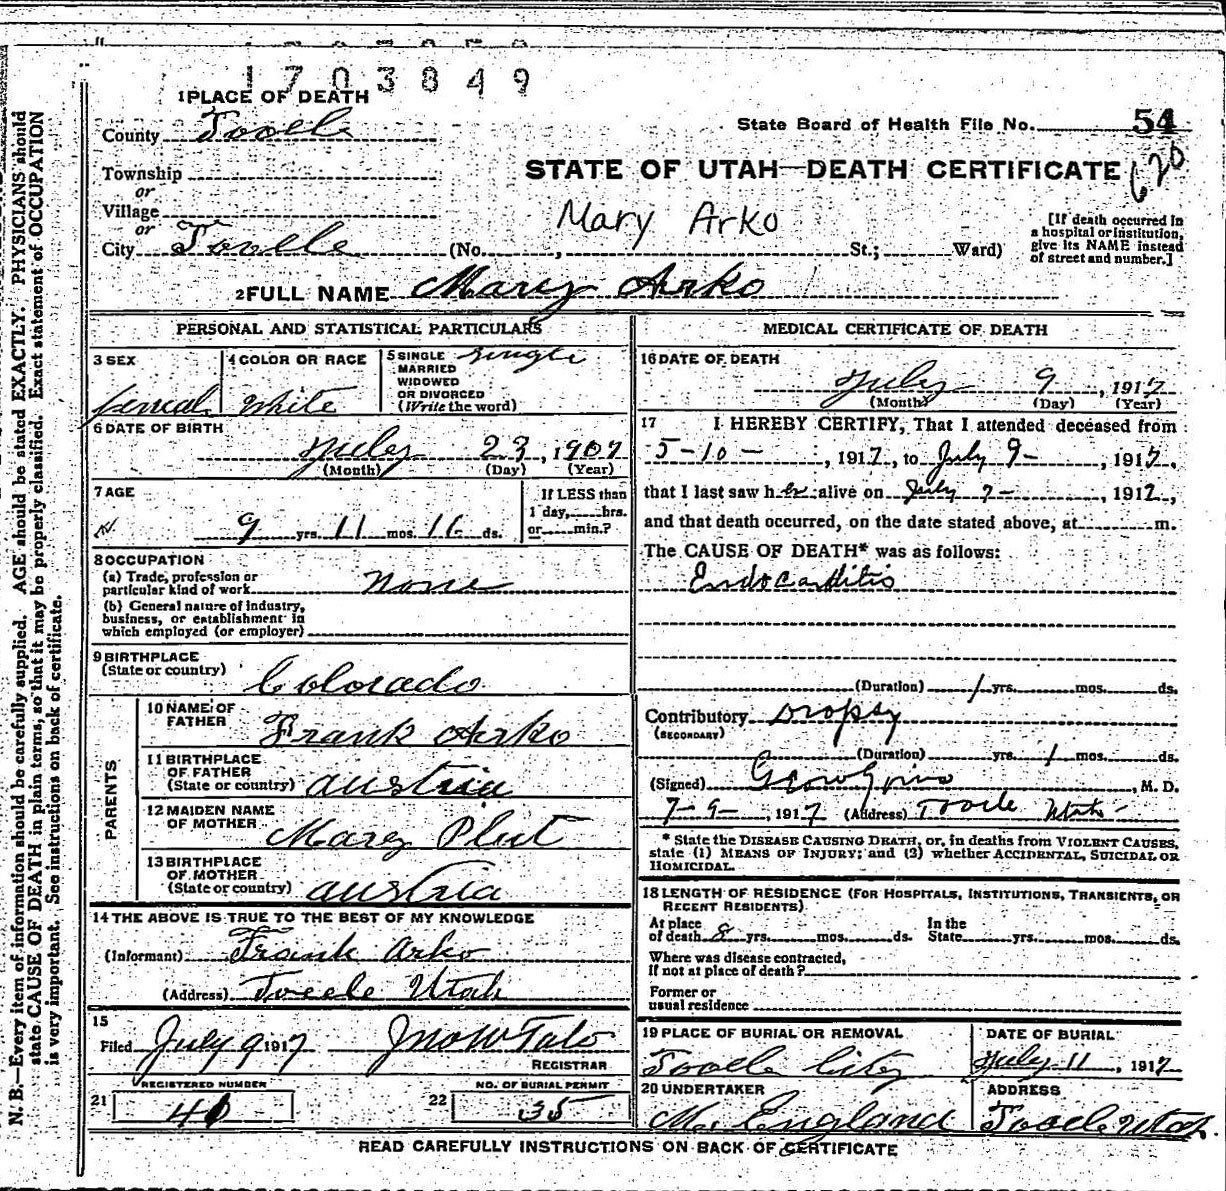 1703849
1 PLACE OF DEATH
County Tooele
State Board of Health File No. 54
Township
or
Village
or
City Tooele
STATE OF UTAH—DEATH CERTIFICATE
620
Mary Arko
(No. , St.; Ward)
[If death occurred in
a hospital or institution,
give its NAME instead
of street and number.]
2 FULL NAME Mary Arko
PERSONAL AND STATISTICAL PARTICULARS
3 SEX
femal
4 COLOR OR RACE
White
5 SINGLE single
MARRIED
WIDOWED
OR DIVORCED
(Write the word)
6 DATE OF BIRTH
July 23, 1907
(Month) (Day) (Year)
7 AGE
9 yrs. 11 mos. 16 ds.
If LESS than
1 day, hrs.
or min.?
8 OCCUPATION
(a) Trade, profession or
particular kind of work None
(b) General nature of industry,
business, or establishment in
which employed (or employer)
9 BIRTHPLACE
(State or country) Colorado
PARENTS
10 NAME OF
FATHER Frank Arko
11 BIRTHPLACE
OF FATHER
(State or country) austria
12 MAIDEN NAME
OF MOTHER Mary Plut
13 BIRTHPLACE
OF MOTHER
(State or country) austria
14 THE ABOVE IS TRUE TO THE BEST OF MY KNOWLEDGE
(Informant) Frank Arko
(Address) Tooele Utah
15
Filed July 9 1917
REGISTRAR
REGISTERED NUMBER
21
NO. OF BURIAL PERMIT
22 35
MEDICAL CERTIFICATE OF DEATH
16 DATE OF DEATH
July 9, 1917
(Month) (Day) (Year)
17 I HEREBY CERTIFY, That I attended deceased from
5-10-, 1917, to July 9-, 1917,
that I last saw her alive on July 7-, 1917,
and that death occurred, on the date stated above, at m.
The CAUSE OF DEATH* was as follows:
Endocarditis
(Duration) 1 yrs. mos. ds.
Contributory Dropsy
(SECONDARY)
(Duration) yrs. 1 mos. ds.
(Signed) , M. D.
7-9-, 1917 (Address) Tooele Utah-
* State the DISEASE CAUSING DEATH, or, in deaths from VIOLENT CAUSES,
state (1) MEANS OF INJURY; and (3) whether ACCIDENTAL, SUICIDAL OR
HOMICIDAL.
18 LENGTH OF RESIDENCE (FOR HOSPITALS, INSTITUTIONS, TRANSIENTS, OR
RECENT RESIDENTS)
At place
of death 8 yrs. mos. ds.
In the
State yrs. mos. ds.
Where was disease contracted,
if not at place of death?
Former or
usual residence
19 PLACE OF BURIAL OR REMOVAL
Tooele City
DATE OF BURIAL
July 11, 1917
20 UNDERTAKER
M. England
ADDRESS
Tooele Utah.
READ CAREFULLY INSTRUCTIONS ON BACK OF CERTIFICATE
N. B.—Every item of information should be carefully supplied. AGE should be stated EXACTLY. PHYSICIANS should
state CAUSE OF DEATH in plain terms, so that it may be properly classified. Exact statement of OCCUPATION
is very important. See instructions on back of certificate.